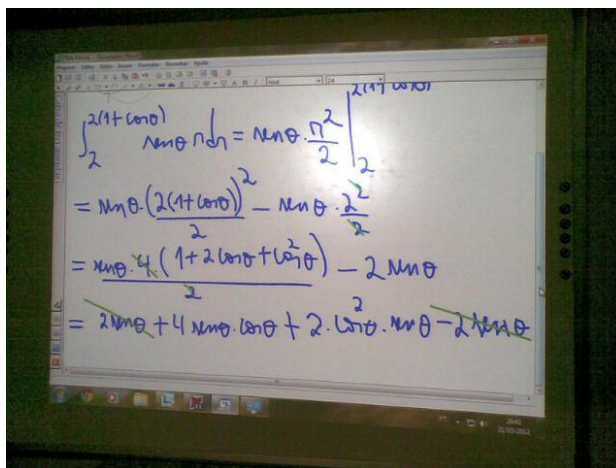 Arial 24
∫₂^{2(1+cosθ)} senθ r dr = senθ · r²/2 |₂^{2(1+cosθ)}
= senθ · (2(1+cosθ))²/2 − senθ · 2²/2
= senθ · 4(1+2cosθ+cos²θ)/2 − 2senθ
= 2senθ + 4senθ·cosθ + 2·cos²θ·senθ − 2senθ
PT 20:41
21/05/2012